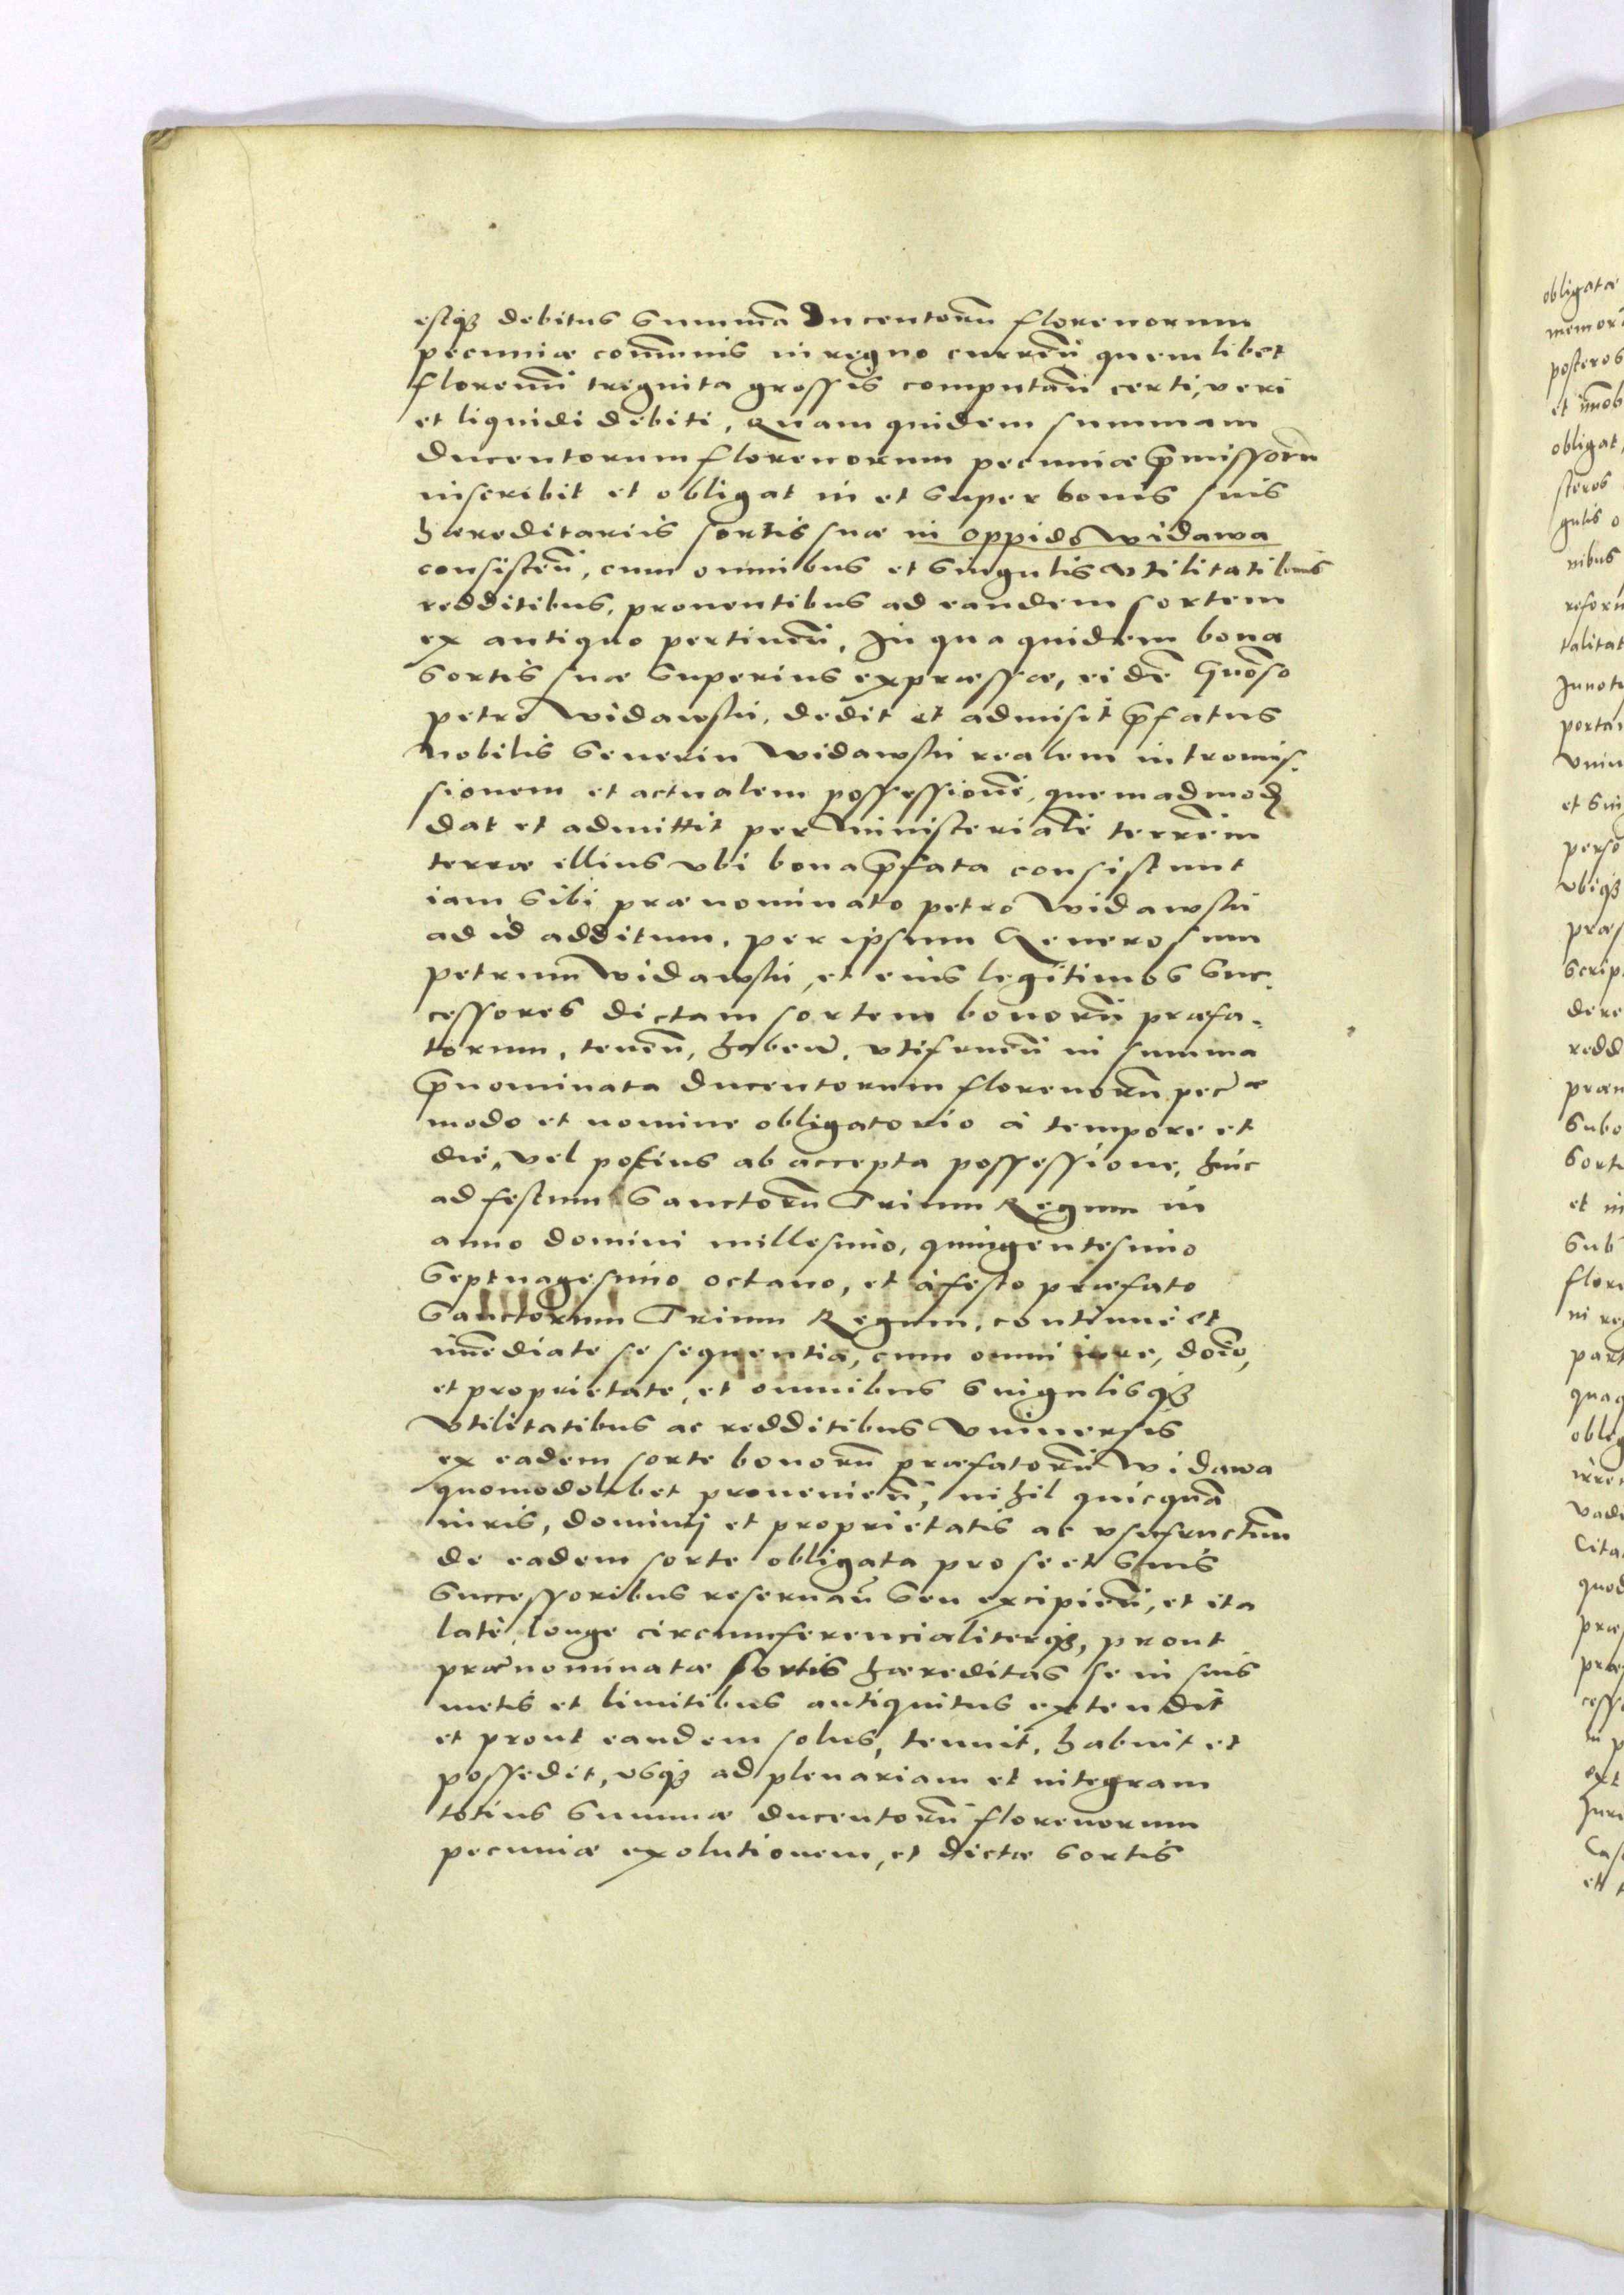 estq₃ debitus summa Ducentorū florenorum
pecuniæ coīmunis in regno curreñ quemlibet
florenū triginta grossis computañ certi, veri
et liquidi debiti, Quam quidem summam
ducentorum florenorum pecuniæ p̄missorū
inscribit et obligat in et super bonis suis
hæreditariis sortis suæ in oppido Widawa
consisteñ, cum omnibus et singulis vtilitatibus
redditibus, prouentibus ad eandem sortem
ex antiquo pertineñ, In qua quidem bona
sortis suæ superius expræssæ, eidē Gnōso
petro Widawski, dedit et admisit p̄fatus
Nobilis Seuerin Widawski realem intromis-
sionem et actualem possessionē, quemadmodū
dat et admittit per Ministerialē terrēm
terræ illius vbi bona p̄fata consistunt
iam sibi prænominato petro Widawski
ad id additum, per ipsum Generosum
petrum Widawski, et eius legitimos suc-
cessores dictam sortem bonorū præfa-
torum, teneñ, habeñ, vtifrueñ in summa
p̄nominata ducentorum florenorū pecæ
modo et nomine obligatorio à tempore et
die, vel potius ab accepta possessione, hinc
ad festum Sanctorū Trium Regum in
anno domini millesimo, quingentesimo
septuagesimo octauo, et à festo præfato
Sanctorum Trium Regum, continuè et
imēdiate se sequentia, cum omni iure, doīo,
et proprietate, et omnibus singulisq₃
vtilitatibus ac redditibus vniuersis
ex eadem sorte bonorū præfatorū Widawa
quomodolibet prouenieñ, nihil quicquā
iuris, dominij et proprietatis ac vsufructum
de eadem sorte obligata pro se et suis
successoribus reseruañ seu excipieñ, et ita
latè, longe circumferencialiterq₃, prout
prænominatæ sortis hæreditas se in suis
metis et limitibus antiquitus extendit
et prout eandem solus, tenuit, habuit et
possedit, vsq₃ ad plenariam et integram
totius summæ ducentorū florenorum
pecuniæ exolutionem, et dictæ sortis
obligatæ
posteros
obligat,
steros
nibus
et
redd
sub
quod